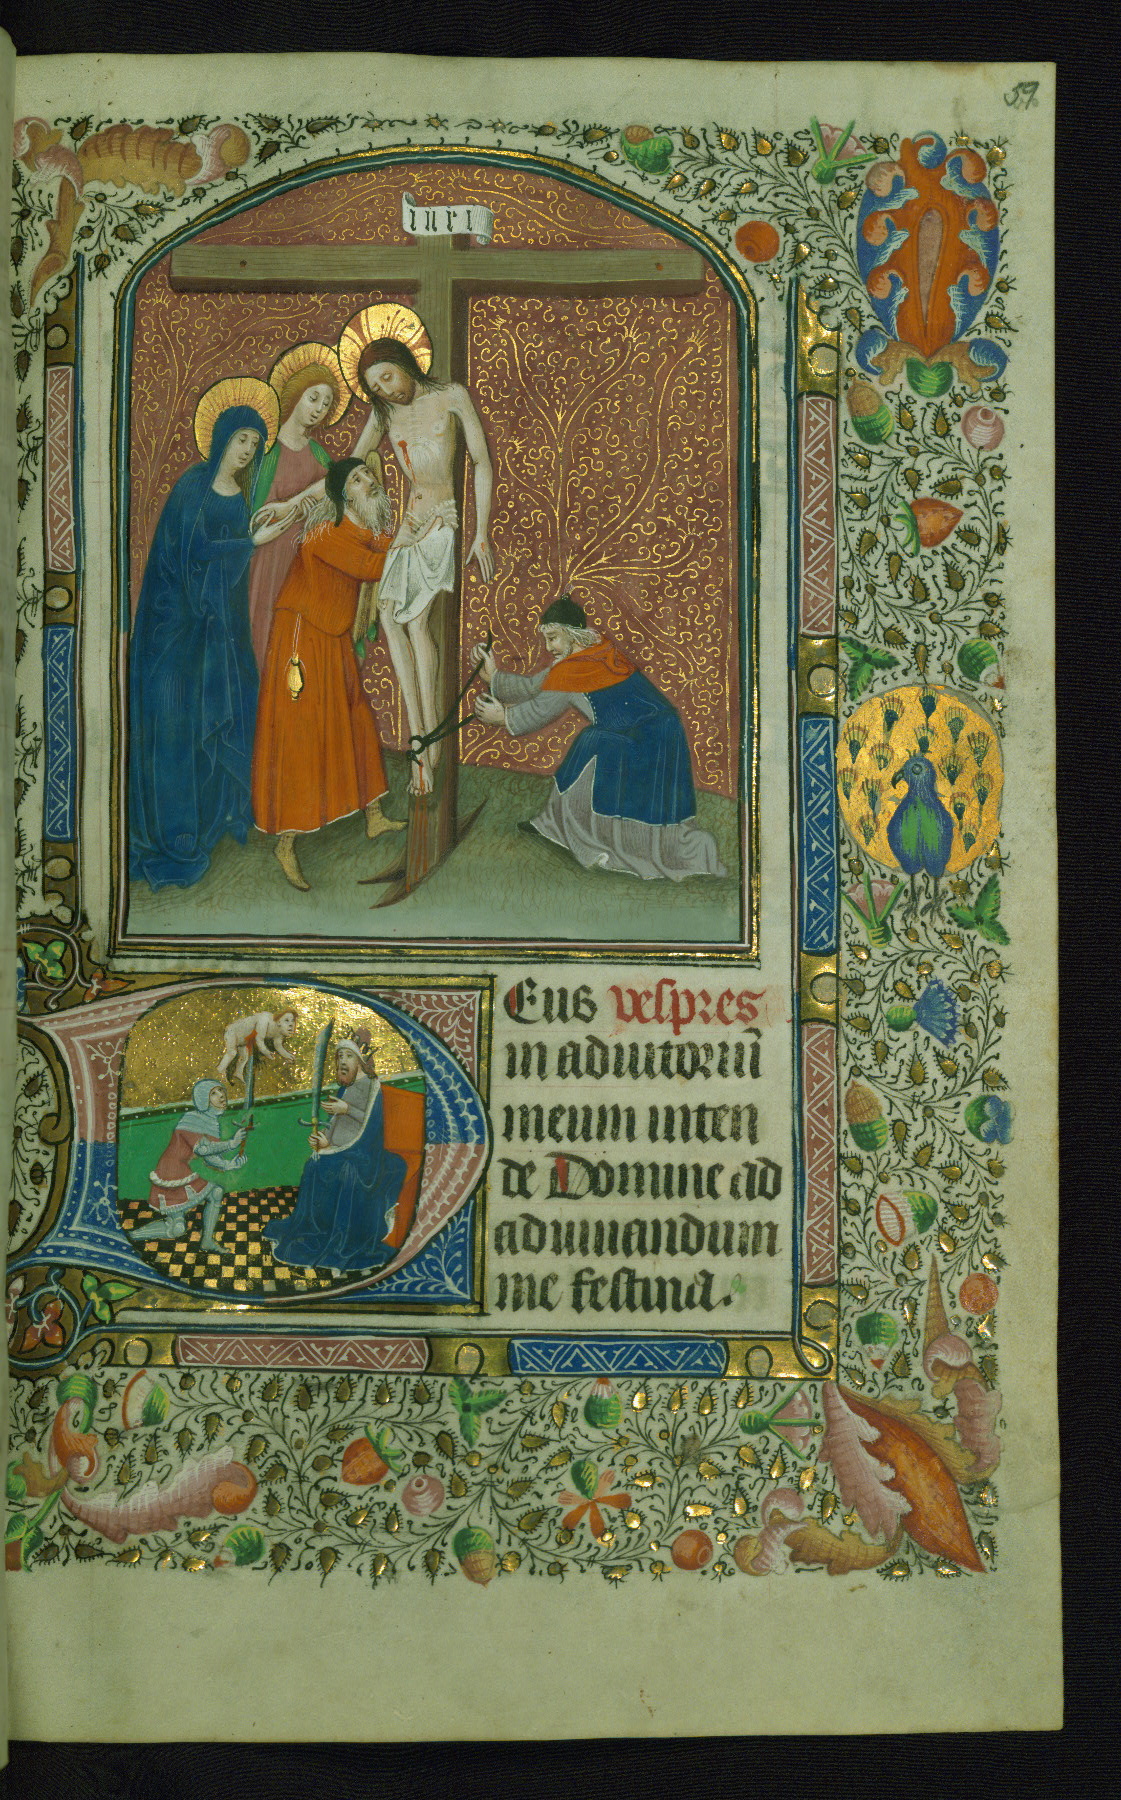 59.
inri
Eus vespres
in adiutoriu̅
meum inten
de Domine ad
adiuuandum
me festina.